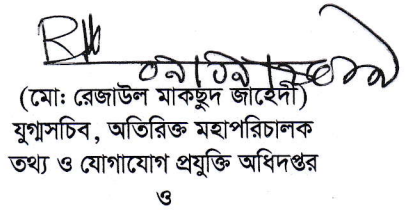 (মো: রেজাউল মাকছুদ জাহেদী)
যুগ্মসচিব, অতিরিক্ত মহাপরিচালক
তথ্য ও যোগাযোগ প্রযুক্তি অধিদপ্তর
ও